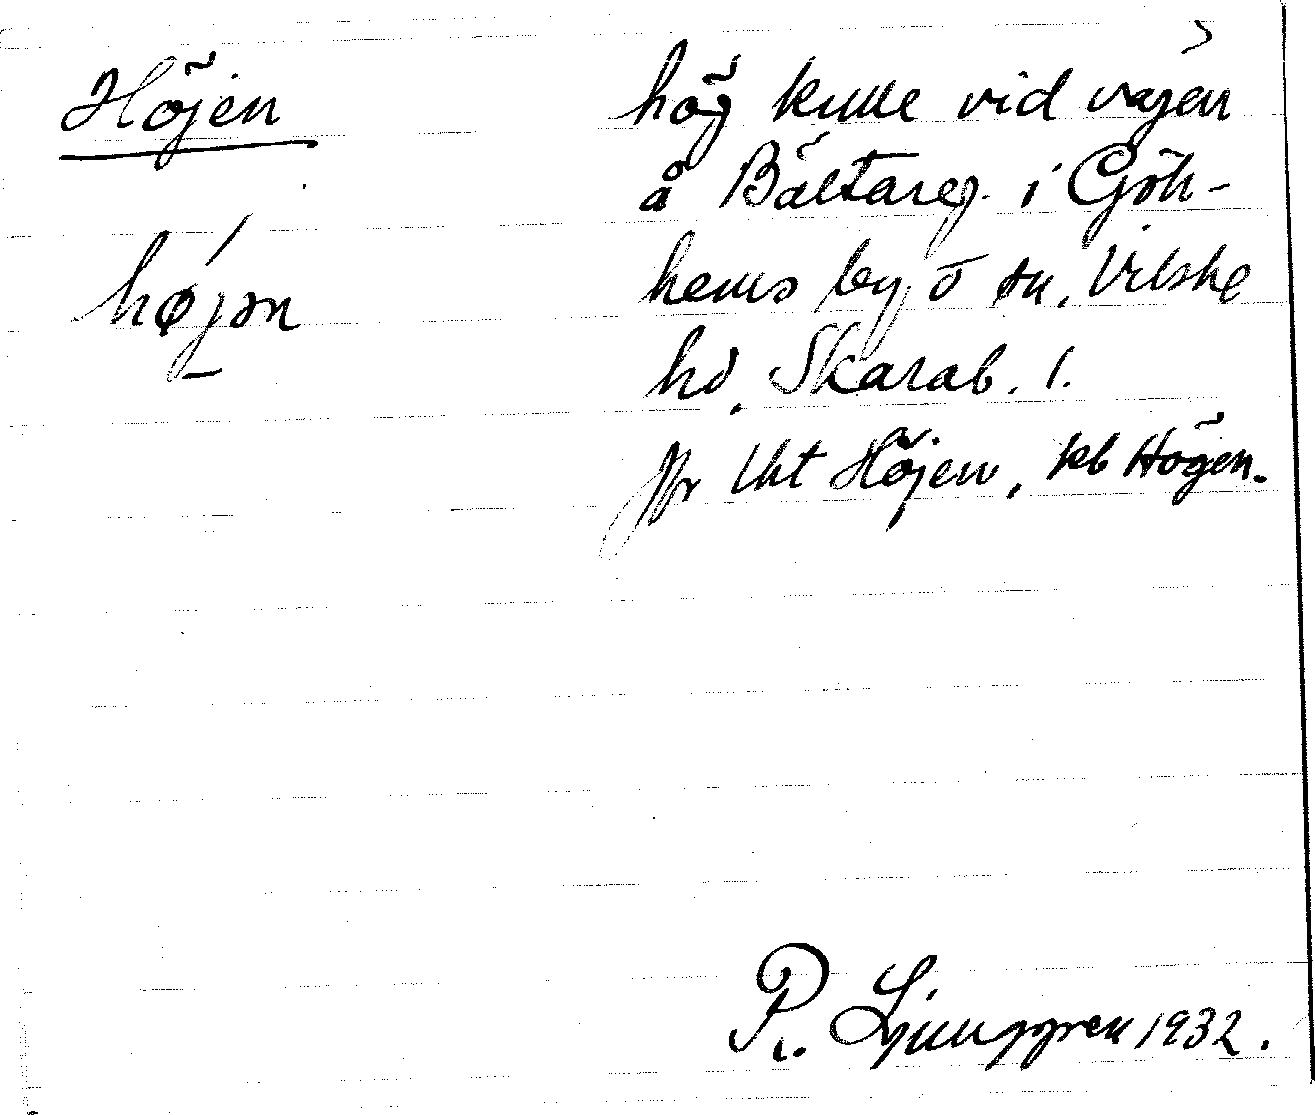 Höjen
højən
hög kulle vid vägen
å Bältareg. i Gök-
hems by o sn, Vilske
hd, Skarab. l.
jfr Uht Höjen, kb Högen.
R. Ljunggren 1932.